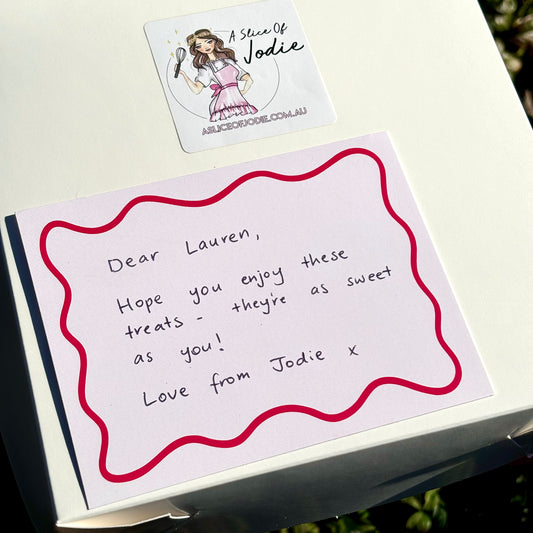 A Slice Of
Jodie
ASLICEOFJODIE.COM.AU
Dear Lauren,
Hope you enjoy these
treats - they're as sweet
as you!
Love from Jodie x